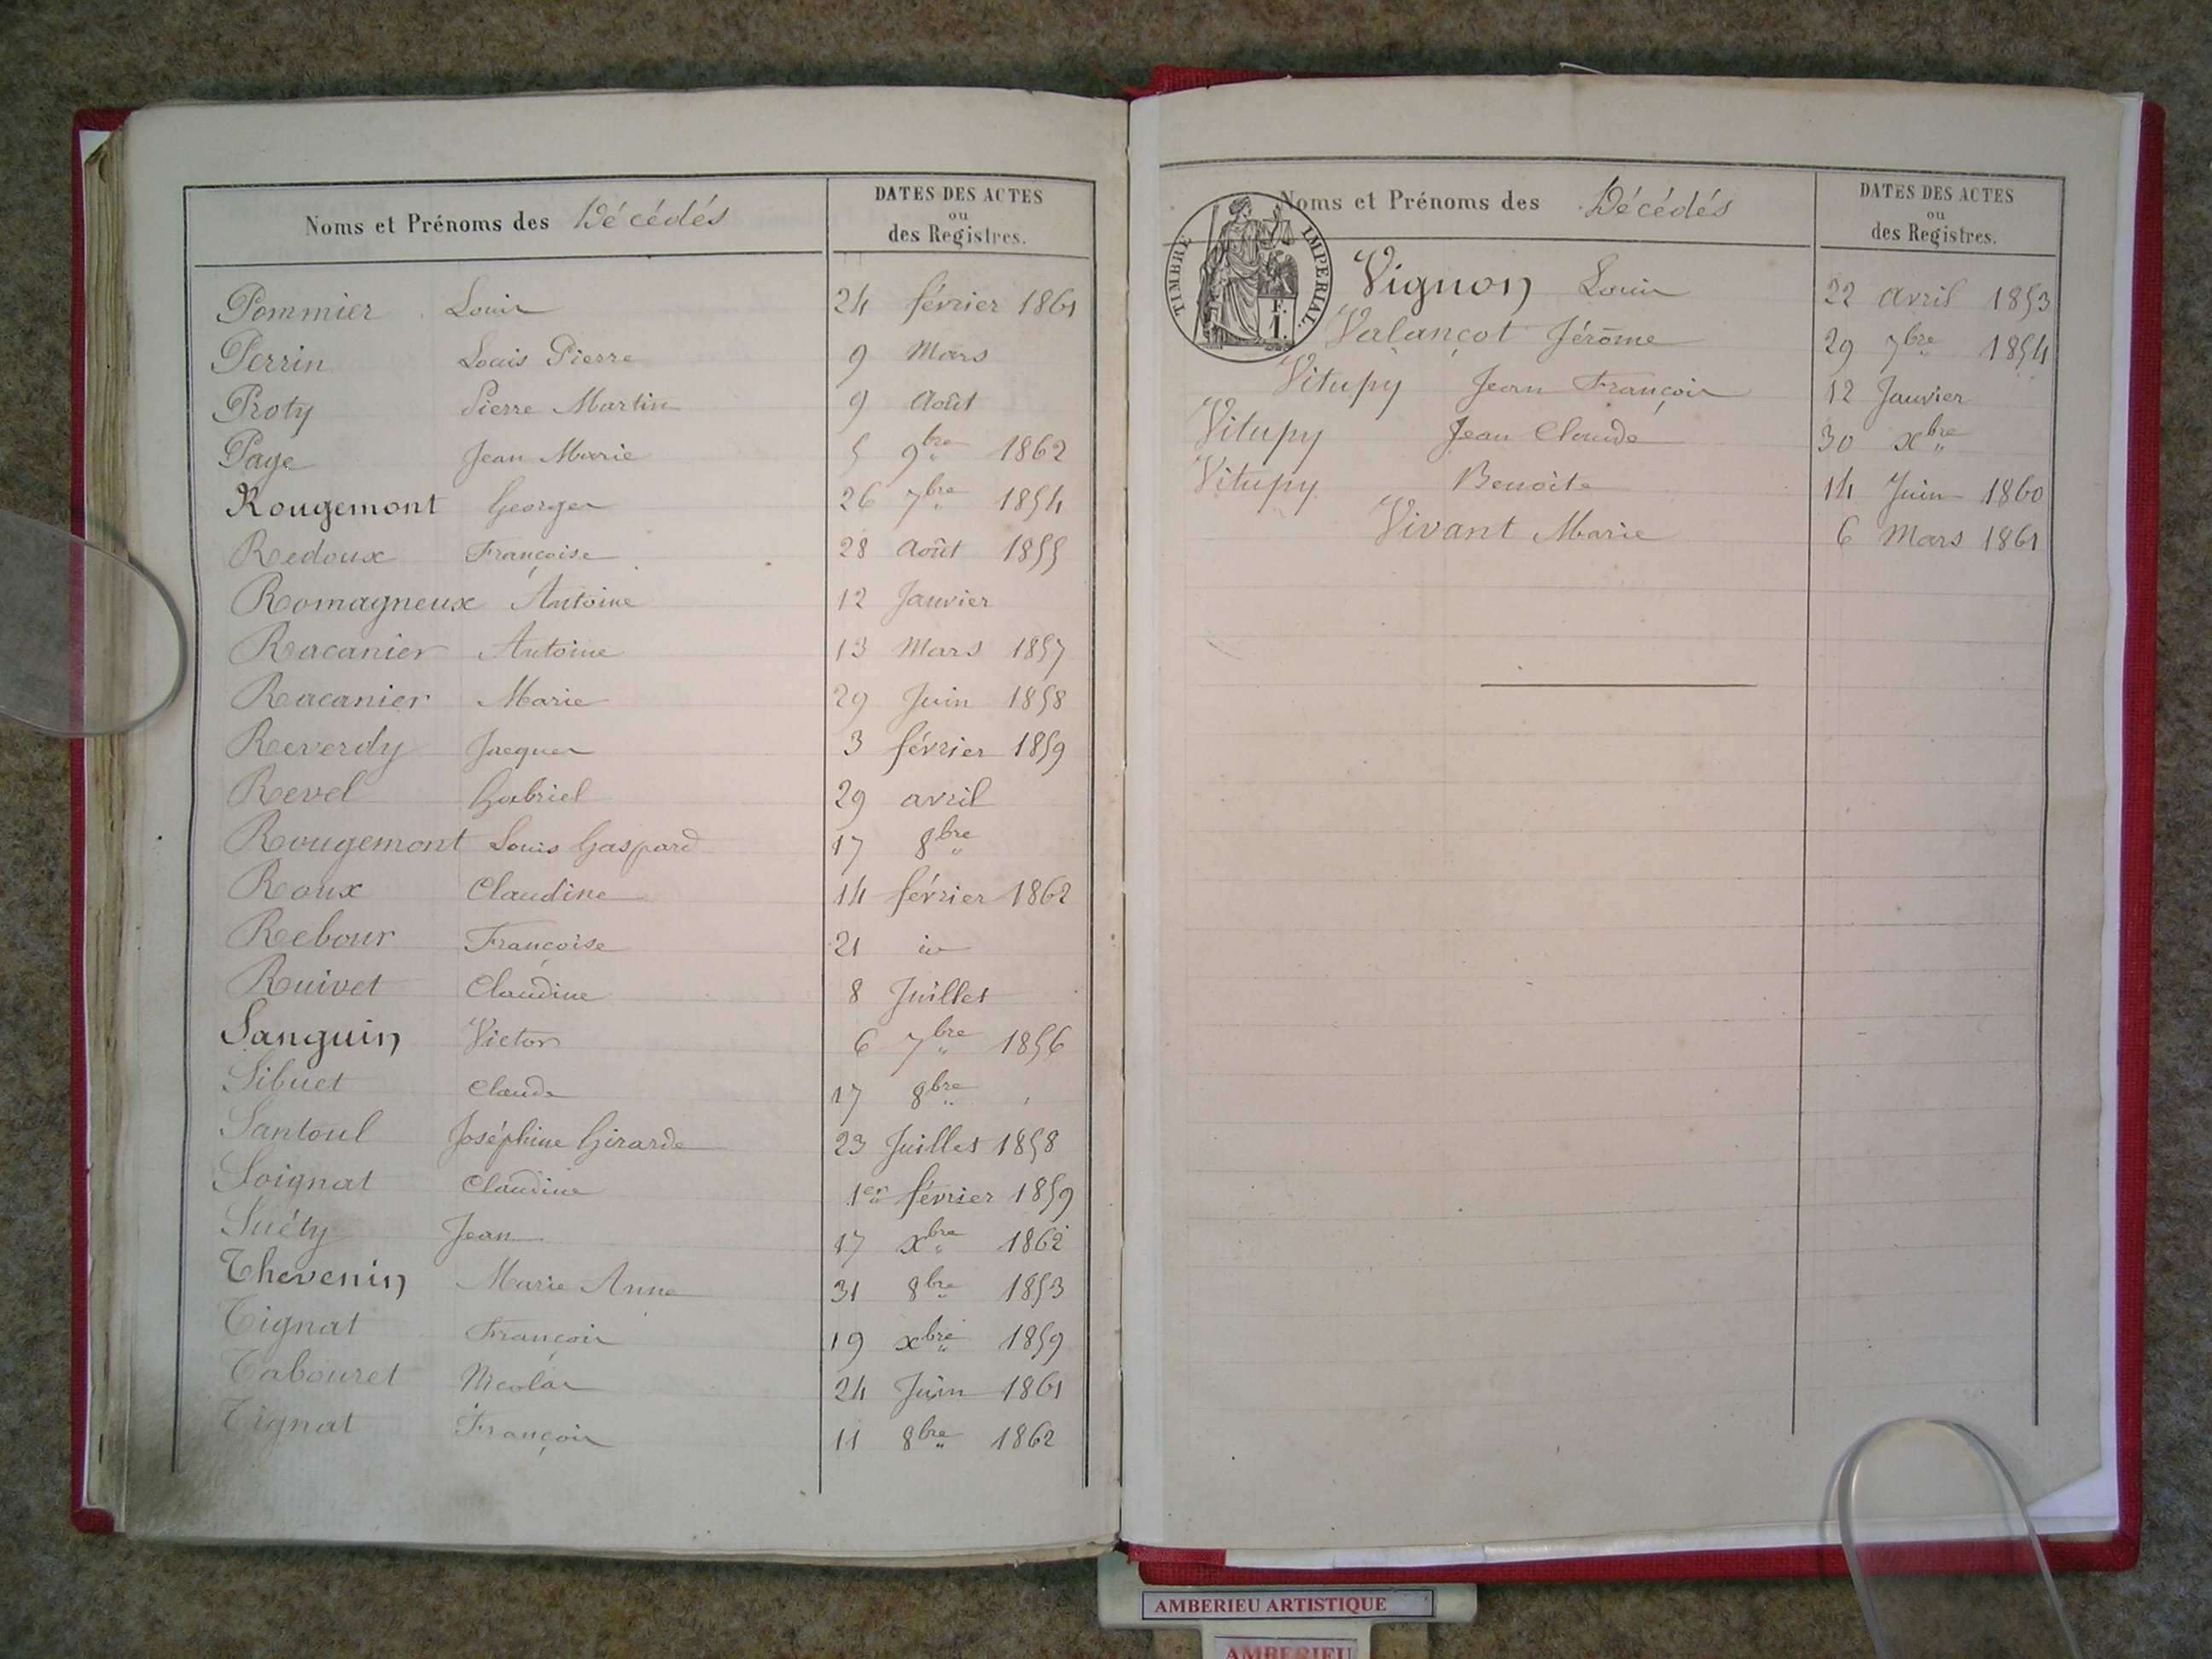 Noms et Prénoms des Décédés
DATES DES ACTES
ou
des Registres.
Pommier Louis 24 février 1861
Perrin Louis Pierre 9 Mars
Proty Pierre Martin 9 Août
Page Jean Marie 5 9bre 1862
Rougemont Georges 26 7bre 1854
Redoux Françoise 28 Août 1855
Romagneux Antoine 12 Janvier
Racanier Antoine 13 Mars 1857
Racanier Marie 29 Juin 1858
Reverdy Jacques 3 février 1859
Revel Gabriel 29 avril
Rougemont Louis Gaspard 17 8bre
Roux Claudine 14 février 1862
Rebour Françoise 21 id
Ruivet Claudine 8 Juillet
Sanguin Victor 6 7bre 1856
Sibuet Claude 17 8bre
Santoul Joséphine Girarde 23 Juillet 1858
Soignat Claudine 1er février 1859
Suéty Jean 17 xbre 1862
Thevenin Marie Anne 31 8bre 1853
Tignat François 19 xbre 1859
Tabouret Nicolas 24 Juin 1861
Tignat François 11 8bre 1862
Noms et Prénoms des Décédés
DATES DES ACTES
ou
des Registres.
TIMBRE IMPERIAL.
F.
1.
Vignon Louis 22 avril 1853
Valançot Jérôme 29 7bre 1854
Vitupy Jean François 12 Janvier
Vitupy Jean Claude 30 xbre
Vitupy Benoite 14 Juin 1860
Vivant Marie 6 Mars 1861
AMBERIEU ARTISTIQUE
AMBERIEU